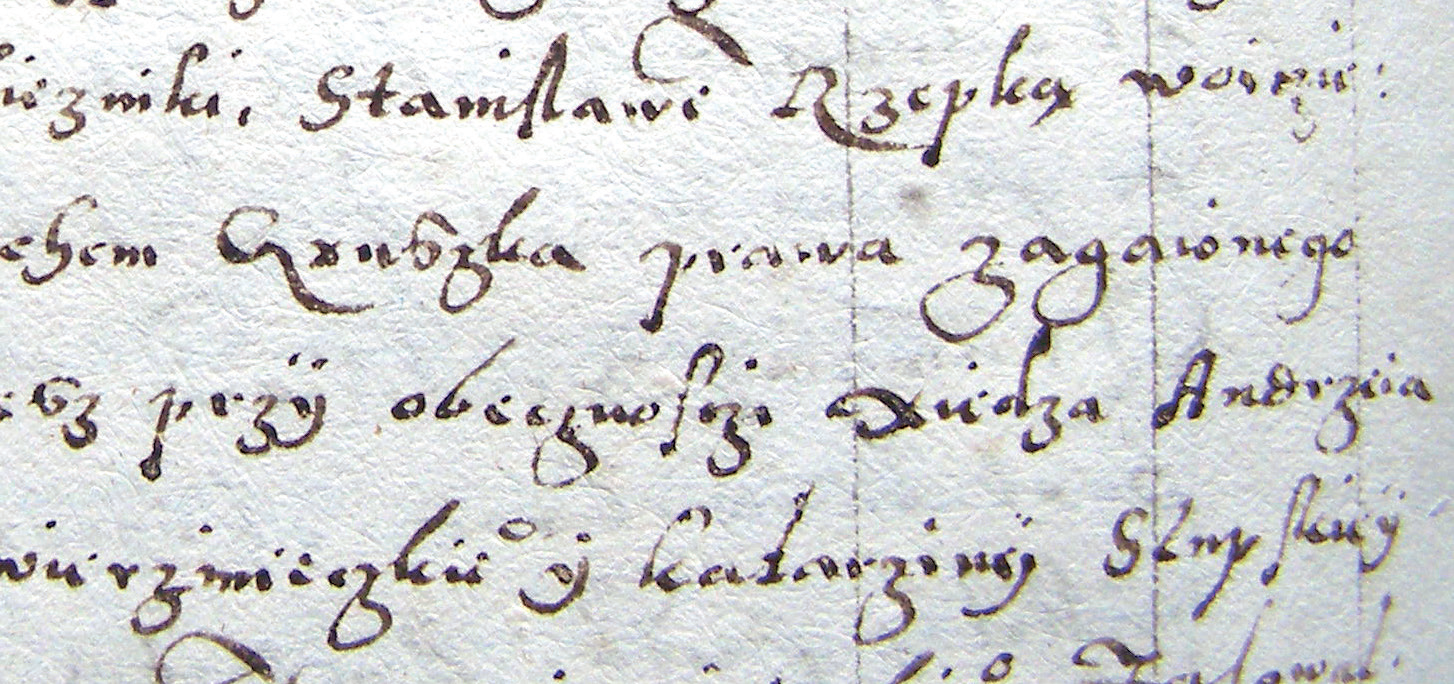 iezniki, Stanisławē Rzepką woicie:
chem Kruszka prawa zagaionego
esz przÿ obecznosczi Xiedza Andrzeia
wierzmieczkie° ÿ katarzinÿ Słupskieÿ